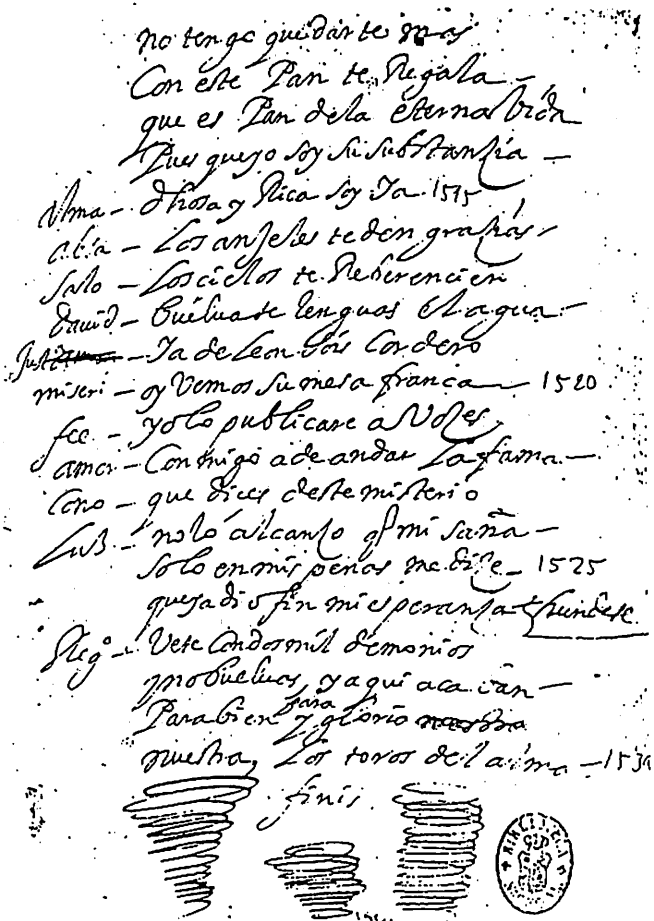 no tengo que darte mas
Con este Pan te Regala
que es Pan dela eterna bida
Pues que yo soy su substanzia
Alma - dhosa y Rica soy Ya 1515
alía - Los anjeles te den grazias
Salo - Los cielos te Reberencien
David - buélbase lenguas el agua
Justi - Ya de Leon sois Cordero
miseri - oy Vemos su mesa franca 1520
fee - yo lo publicare a Vozes
amor - Conmigo a de andar La fama
Cono - que dices deste misterio
Luz - no lo alcanzo q mi saña
solo en mis penas me dize 1525
que ya dio fin mi esperanza hundese
Rego - Vete Con dos mil demonios
y no buelbas, y aqui acavan
Para bien para y gloria
nuestra, Los toros del alma 1530
finis